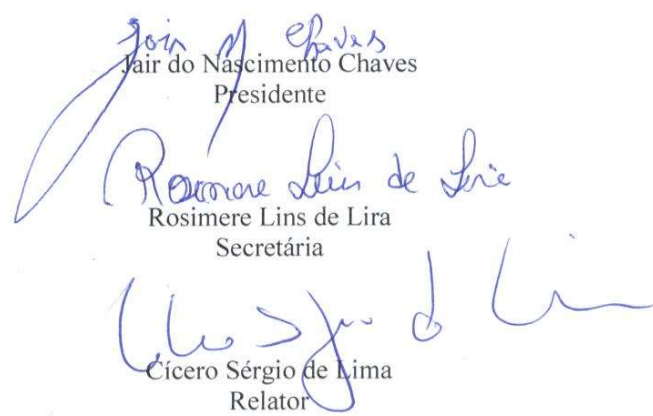 Jair N Chaves
Jair do Nascimento Chaves
Presidente
Rosimere Lins de Lira
Rosimere Lins de Lira
Secretária
Cícero Sérgio de Lima
Relator